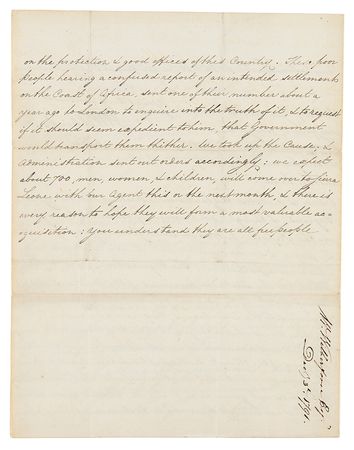 on the protection & good offices of this Country. These poor
People hearing a confused report of an intended settlement
on the Coast of Africa, sent one of their number about a
year ago to London to enquire into the truth of it, & to request
if it should seem expedient to him, that Government
would transport them thither. We took up the Cause, &
Administration sent out orders accordingly: we expect
about 700, men, women, & children, will come over to Sierra
Leone with our Agent this or the next month, & there is
every reason to hope they will form a most valuable ac=
quisition: You understand they are all free people
Wm Wilberforce Esq.
Decr 3d 1791.